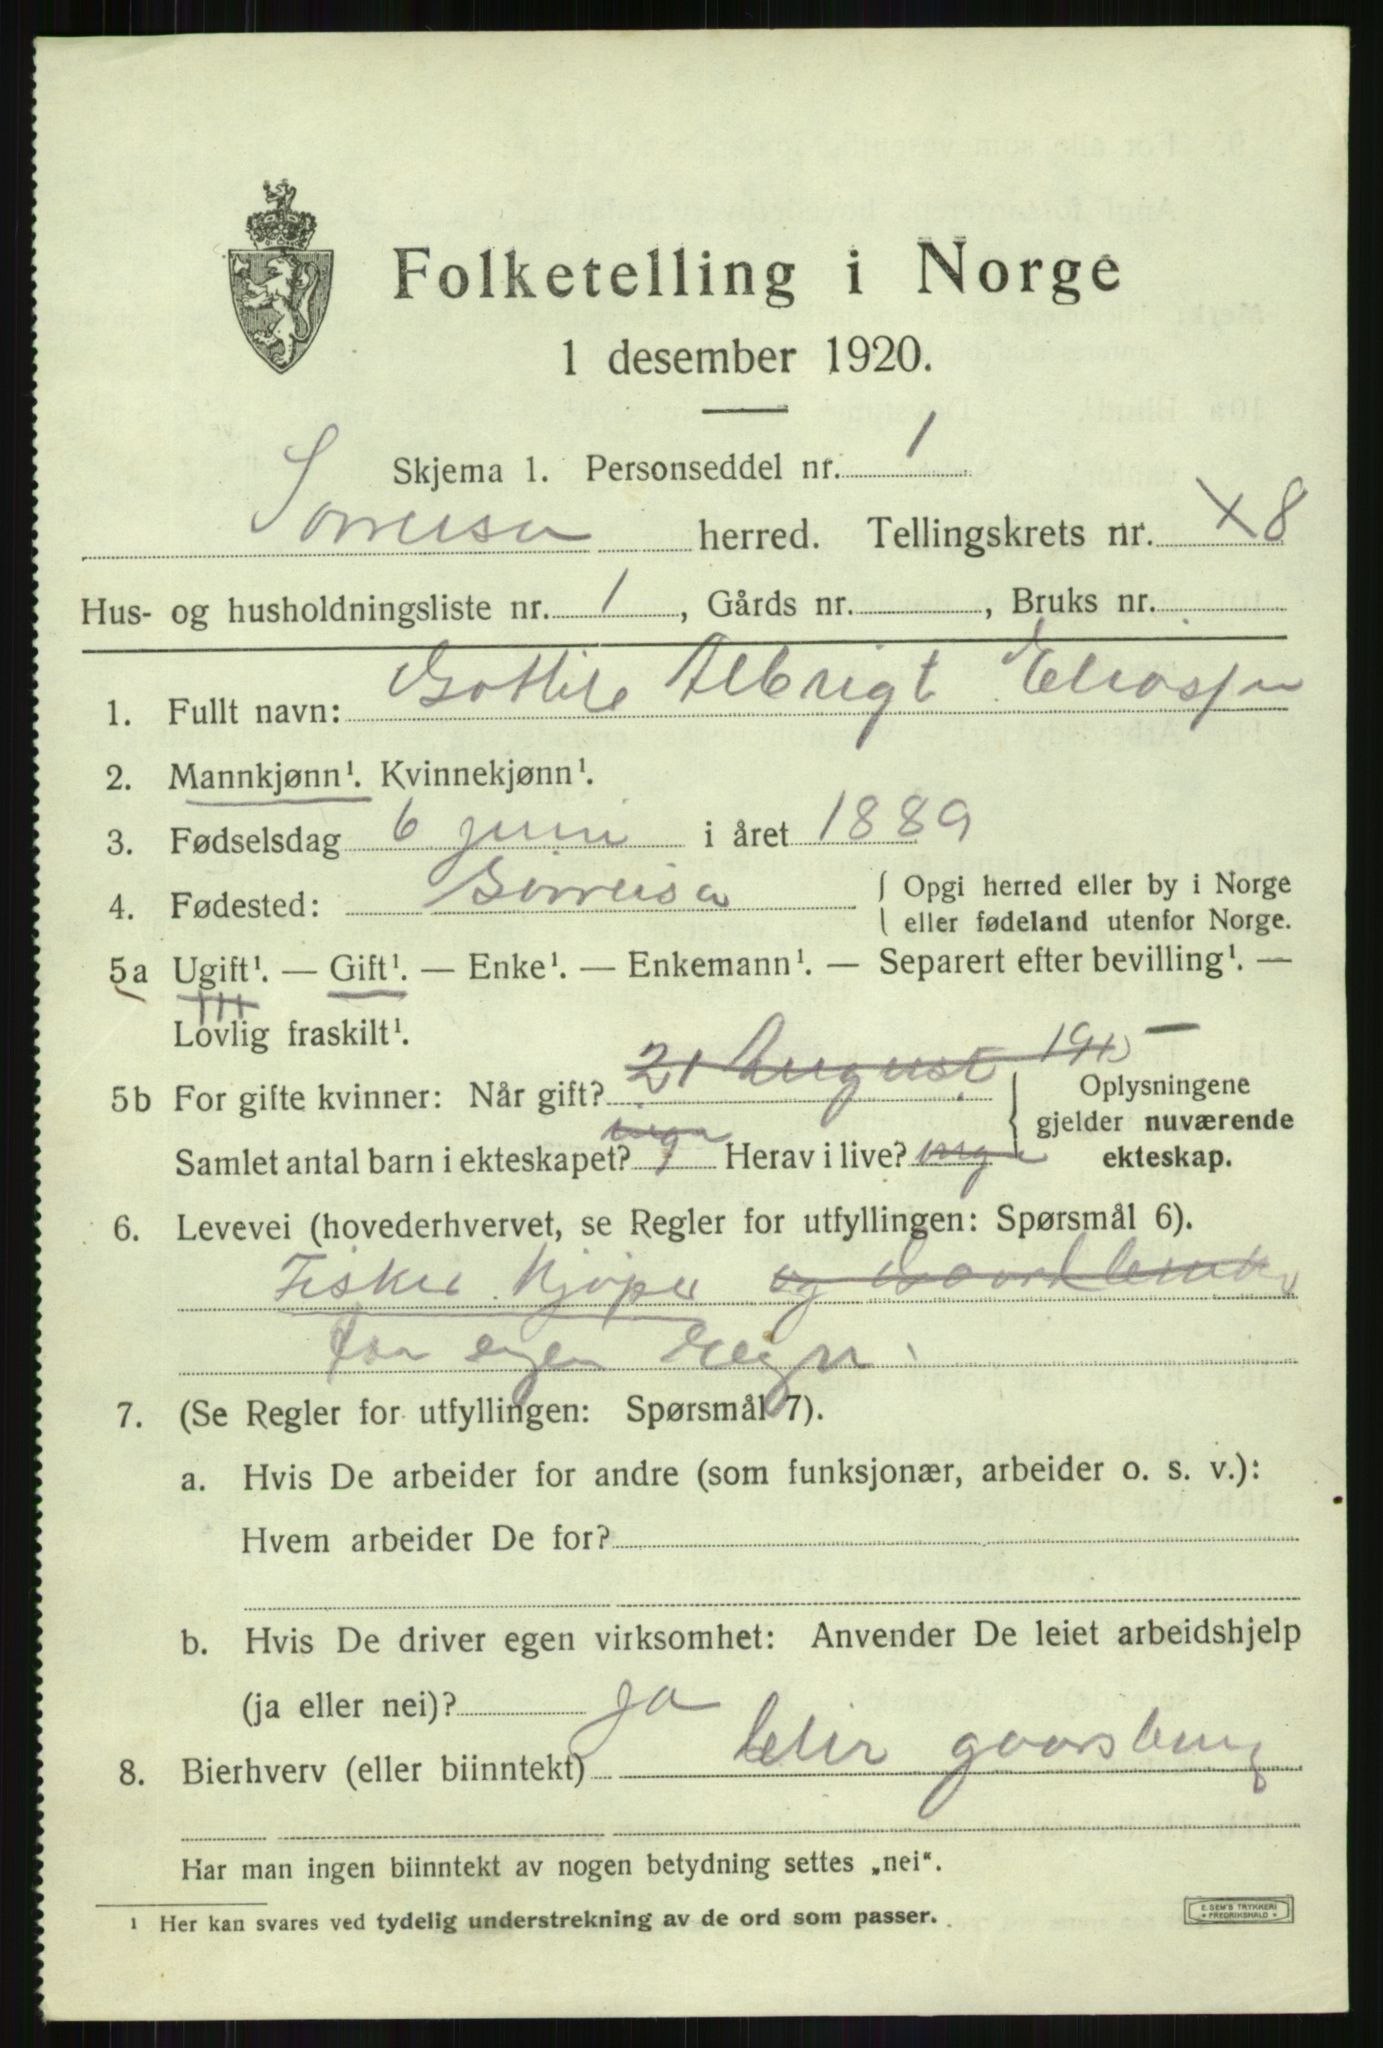 Folketelling i Norge
1 desember 1920.
Skjema 1. Personseddel nr. 1
Sørreisa herred. Tellingskrets nr. 8
Hus- og husholdningsliste nr. 1, Gårds nr. , Bruks nr.
1. Fullt navn: Albrigt
2. Mannkjønn¹. Kvinnekjønn¹.
3. Fødselsdag 6 juni i året 1889
4. Fødested: Sørreisa { Opgi herred eller by i Norge
eller fødeland utenfor Norge.
5a Ugift¹. — Gift¹. — Enke¹. — Enkemann¹. — Separert efter bevilling¹. —
Lovlig fraskilt¹.
5b For gifte kvinner: Når gift? 21 August 1915
Samlet antal barn i ekteskapet? Herav i live?
Oplysningene
gjelder nuværende
ekteskap.
6. Levevei (hovederhvervet, se Regler for utfyllingen: Spørsmål 6).
Fiske kjøper og
for egen Regn.
7. (Se Regler for utfyllingen: Spørsmål 7).
a. Hvis De arbeider for andre (som funksjonær, arbeider o. s. v.):
Hvem arbeider De for?
b. Hvis De driver egen virksomhet: Anvender De leiet arbeidshjelp
(ja eller nei)? ja
8. Bierhverv (eller biinntekt) gaarsbrug
Har man ingen biinntekt av nogen betydning settes „nei“.
¹ Her kan svares ved tydelig understrekning av de ord som passer.
E. SEM'S TRYKKERI
FREDRIKSHALD